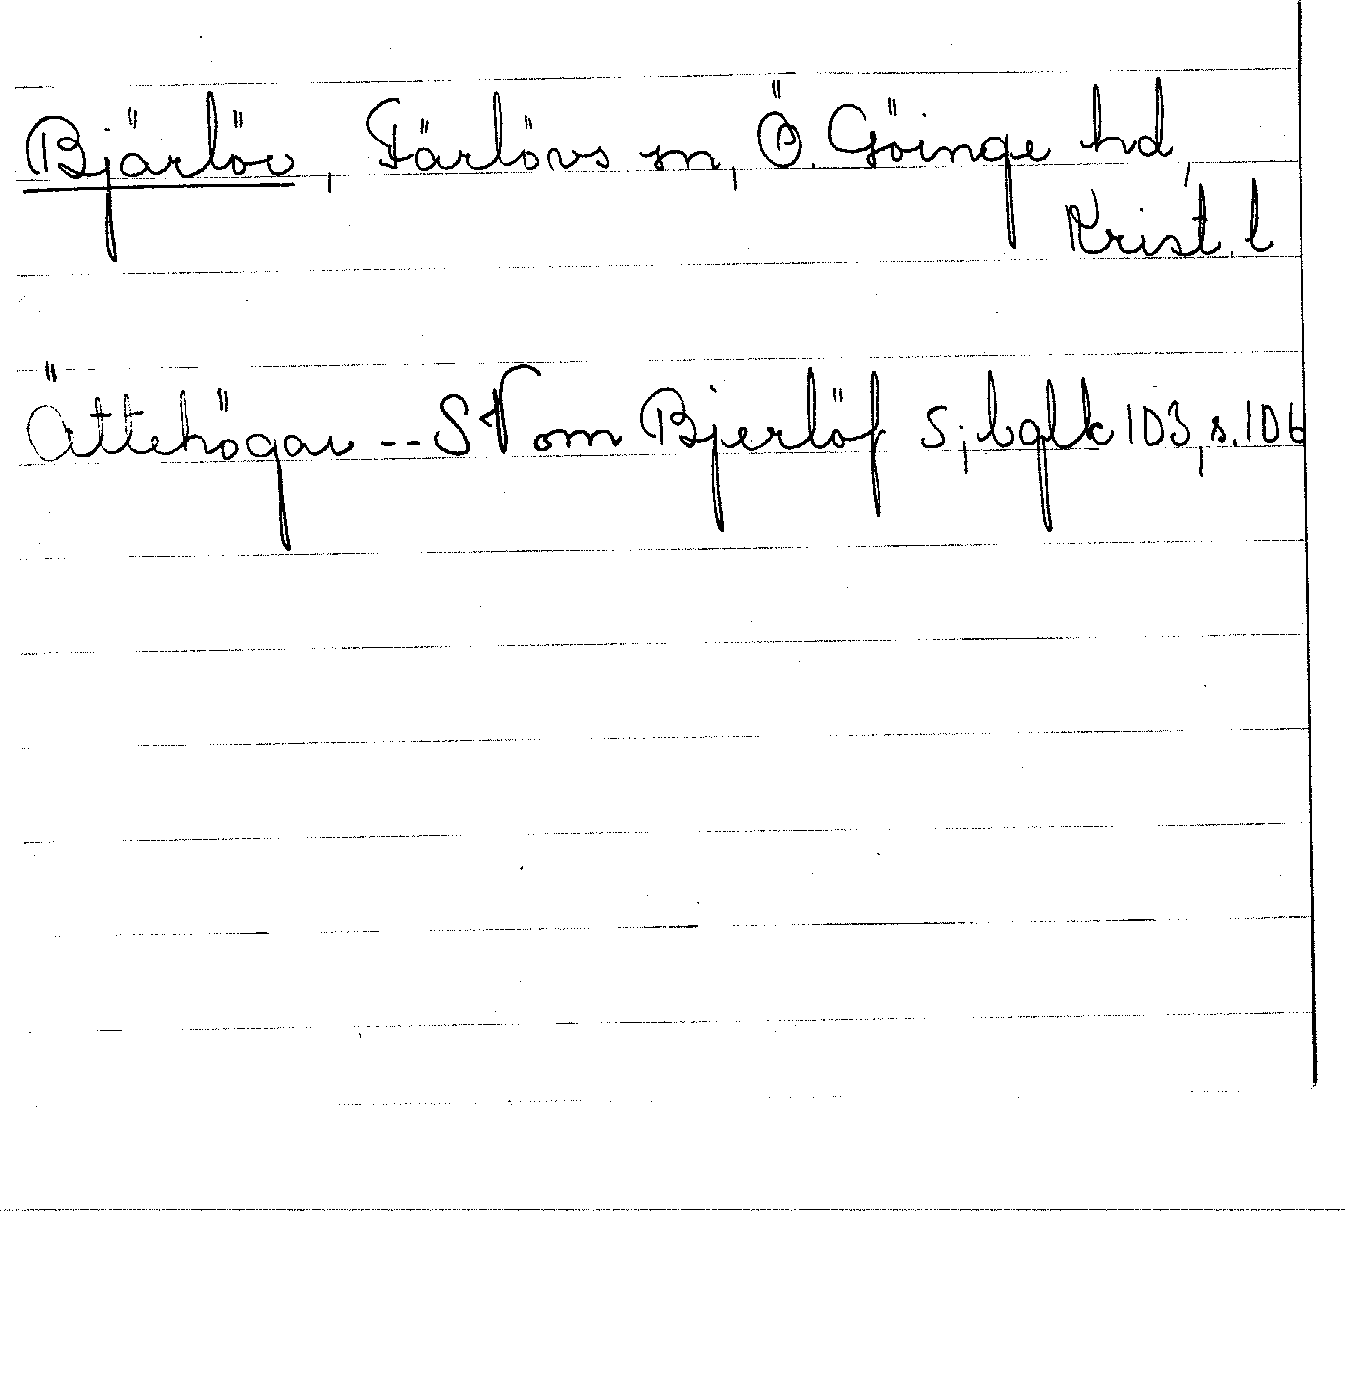 Bjärlöv, Färlövs sn, Ö. Göinge hd,
Krist. l
Ättehögar -- SV om Bjerlöf s; bglk 103, s. 106